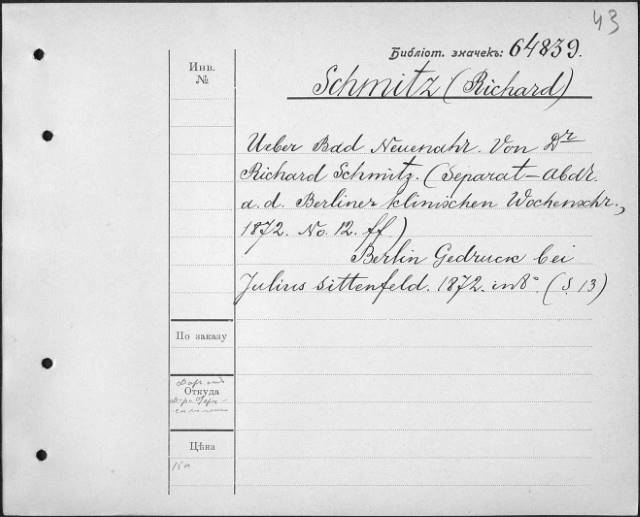 43
Библіот. значекъ: 64839.
Инв.
№
Schmitz (Richard)
Ueber Bad Neuenahr. Von Dr
Richard Schmitz. (Separat-Abdr.
a. d. Berliner klinischen Wochenschr.,
1872. No. 12. ff.)
Berlin Gedruck bei
Julius Sittenfeld. 1872. in 8° (S. 13)
По заказу
Откуда
Цѣна